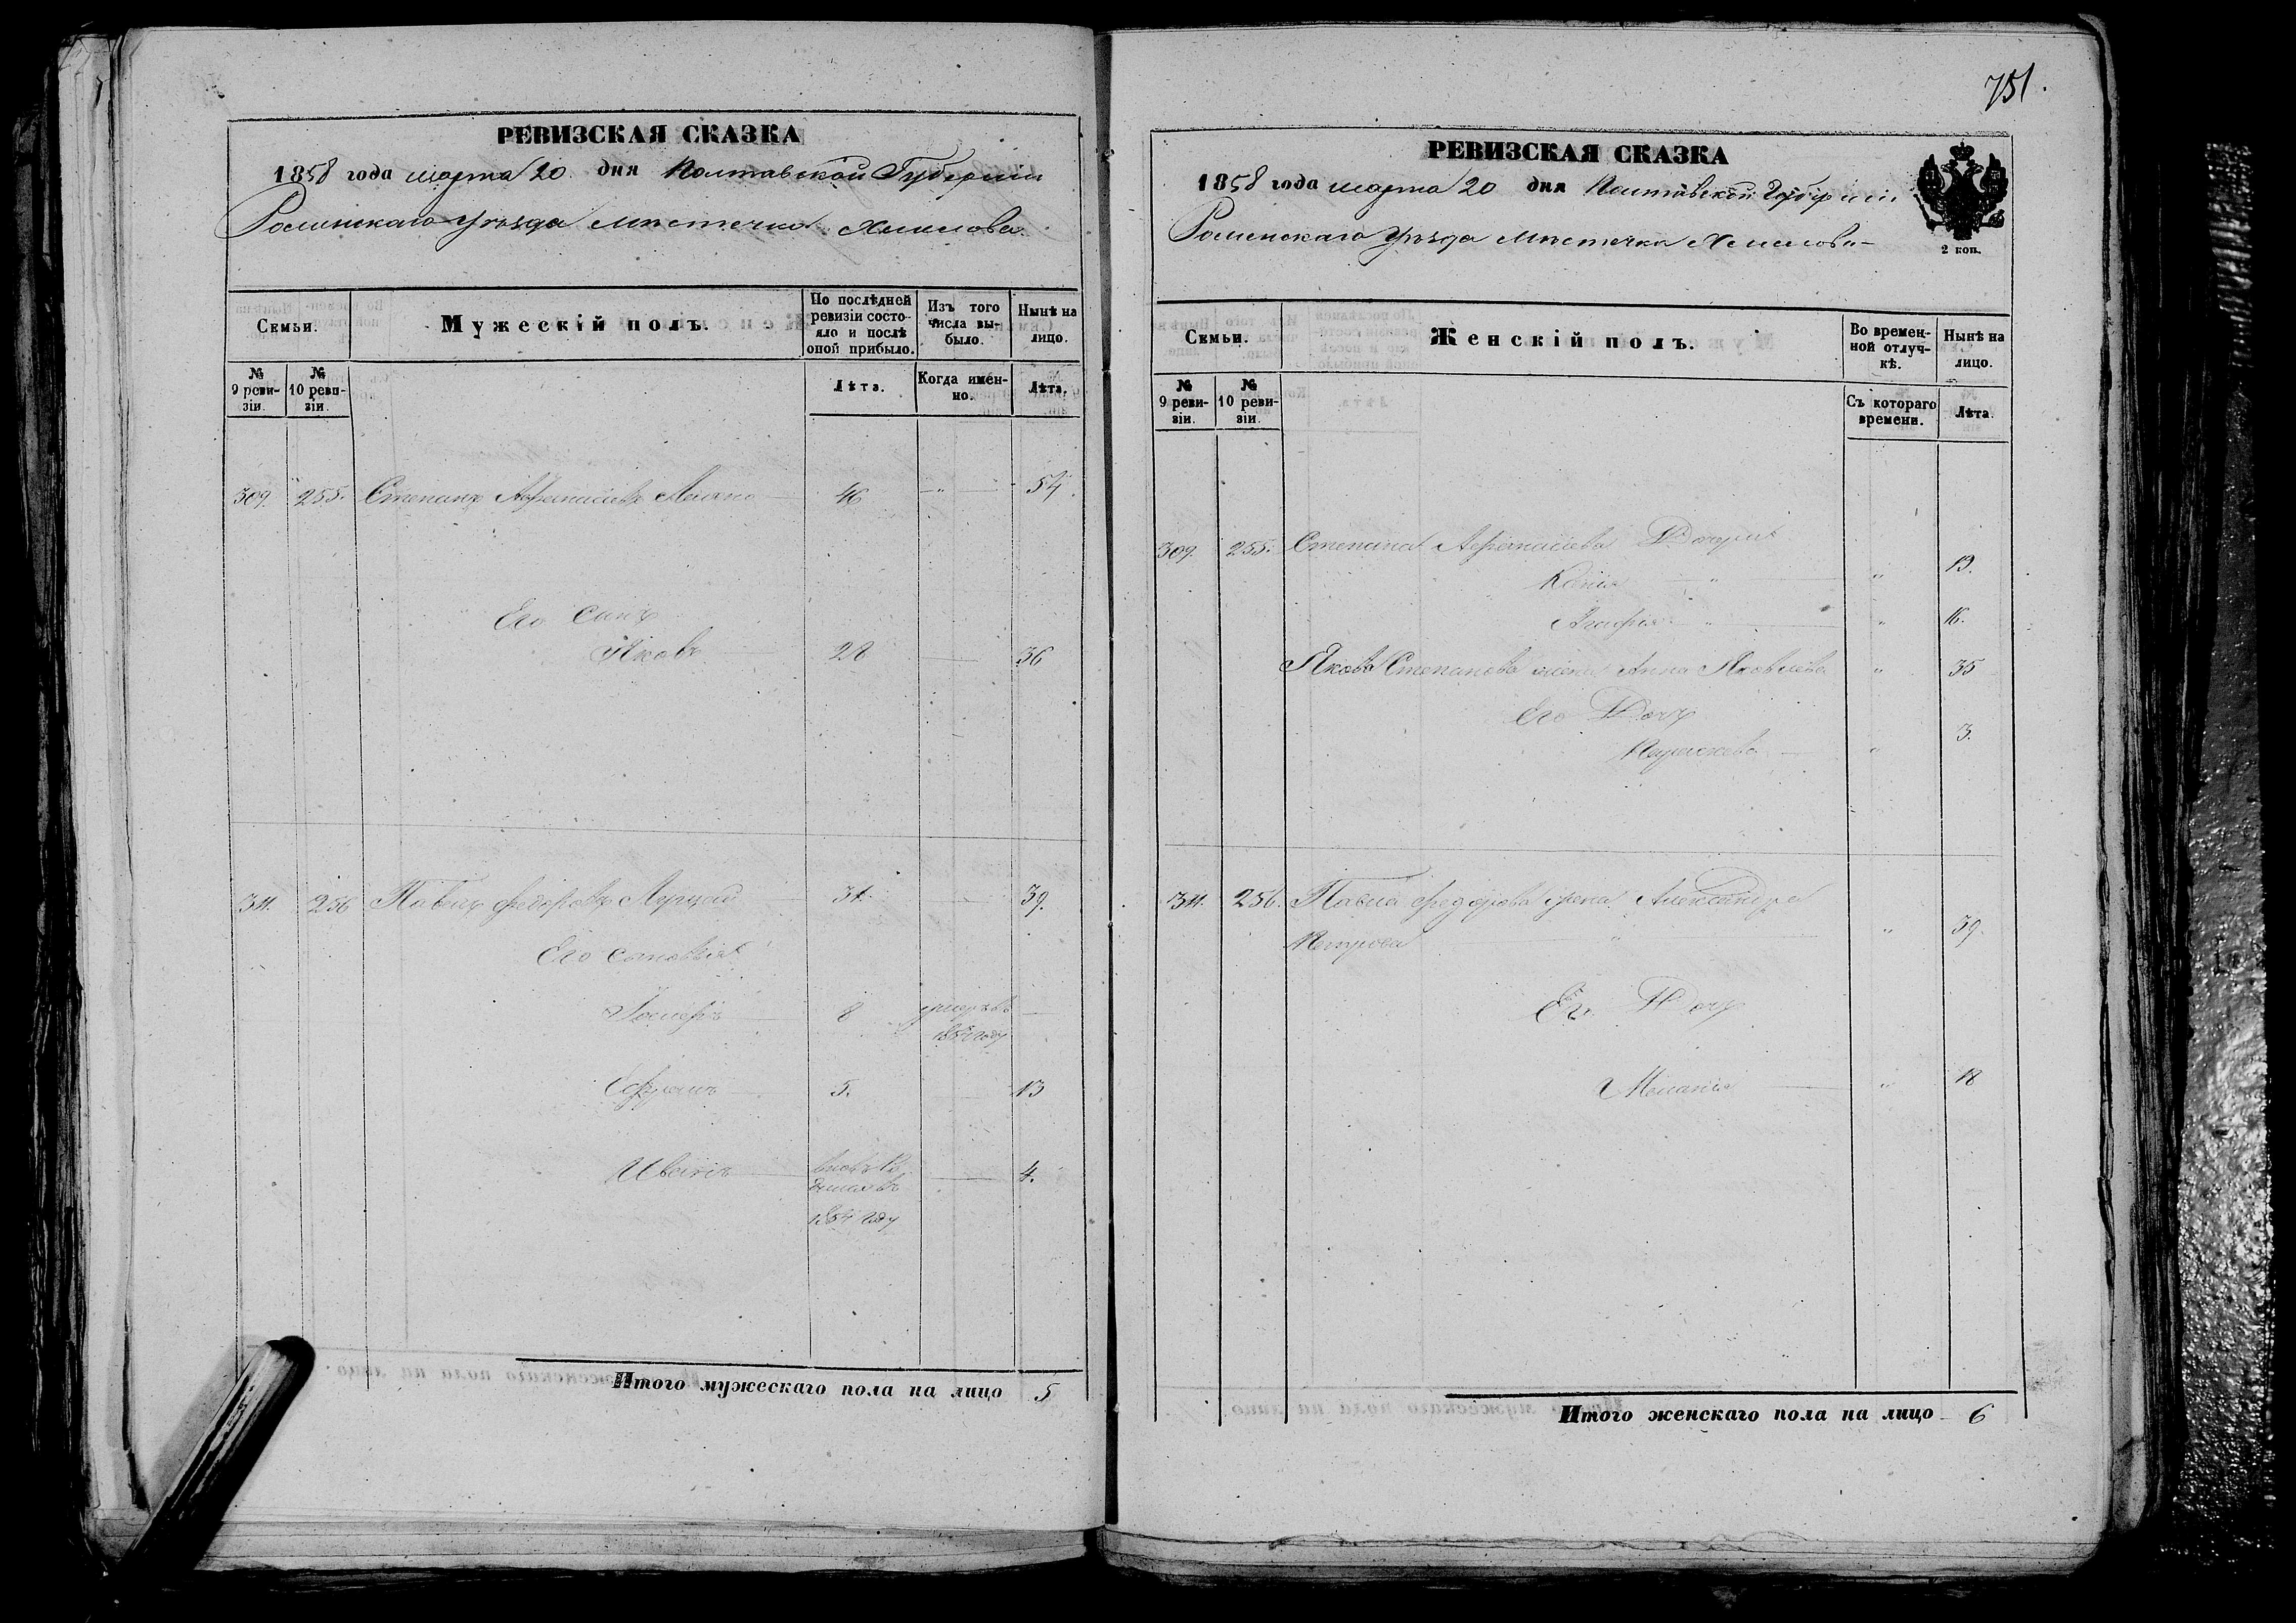 751.
РЕВИЗСКАЯ СКАЗКА
1858 года марта 20 дня Полтавской Губерніи
Роменскаго Уѣзда Мѣстечка Хмелова
Семьи.
Мужескій полъ.
По послѣдней ревизіи состояло и послѣ оной прибыло.
Изъ того числа выбыло.
Нынѣ на лицо.
№ 9 ревизіи.
№ 10 ревизіи.
Лѣта.
Когда именно.
Лѣта.
309. 255. Степанъ Афанасіевъ 46 — „ — 54.
Его Сынъ
Яковъ 28 — 36
311. 256 Павелъ Федоровъ 31. — 39.
Его сыновья
Іосифъ 8 умеръ въ —
1852 году
Ефремъ 5. 13
Иванъ — 4.
1854 году
Итого мужескаго пола на лицо 5
РЕВИЗСКАЯ СКАЗКА
1858 года марта 20 дня Полтавской Губерніи
Роменскаго Уѣзда Мѣстечка Хмелова
2 коп.
Семьи.
Женскій полъ.
Во временной отлучкѣ.
Нынѣ на лицо.
№ 9 ревизіи.
№ 10 ревизіи.
Съ котораго времени.
Лѣта.
309. 255. Степана Афанасіева Дочери
„ „ 19.
Агафія „ „ 16.
Якова Степанова жена Анна Яковлева „ 35
Его Дочь
„ 3.
311. 256. Павла Федорова жена Александра
Петрова „ „ 39.
Его Дочь
Меланія — „ 18
Итого женскаго пола на лицо 6